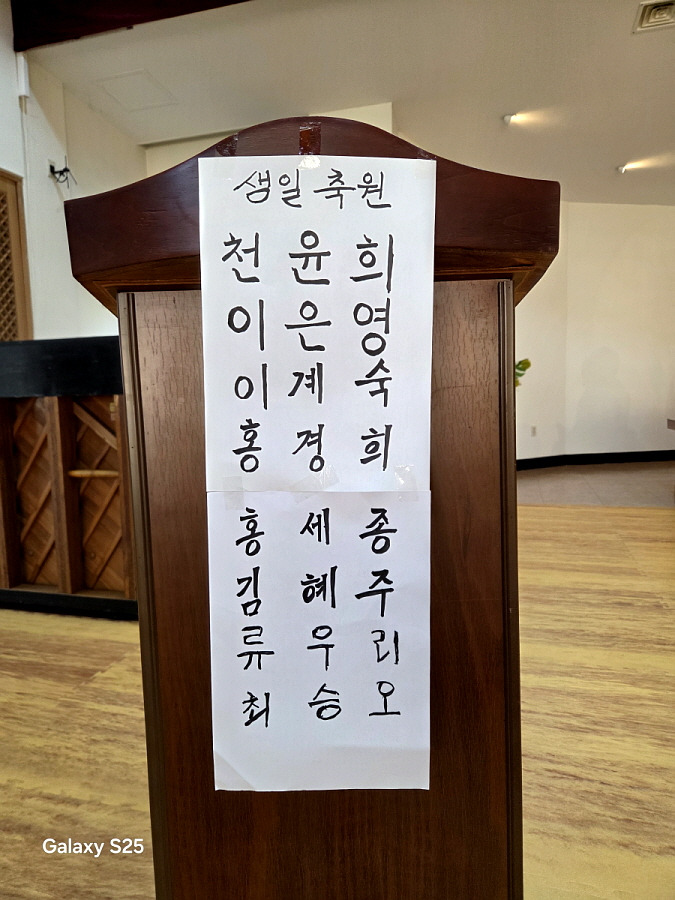 샘일 축원
천 윤 희
이 은 영
이 계 숙
홍 경 희
홍 세 종
김 혜 주
류 우 리
최 승 오
Galaxy S25